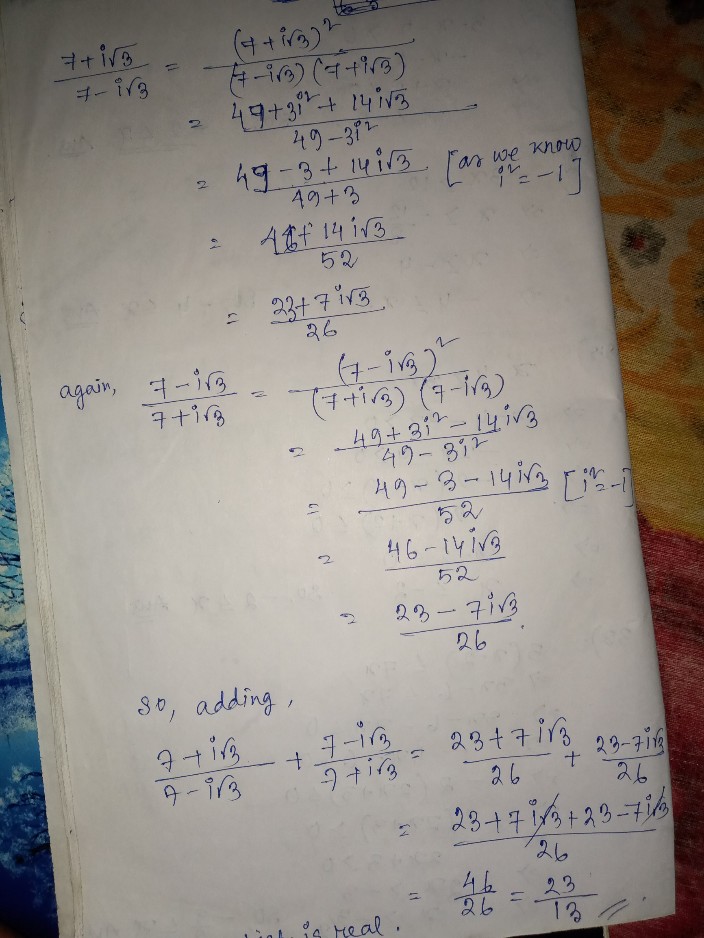 (7+i√3)/(7-i√3) = (7+i√3)²/((7-i√3)(7+i√3))
= (49+3i²+14i√3)/(49-3i²)
= (49-3+14i√3)/(49+3) [as we know i²=-1]
= (46+14i√3)/52
= (23+7i√3)/26
again, (7-i√3)/(7+i√3) = (7-i√3)²/((7+i√3)(7-i√3))
= (49+3i²-14i√3)/(49-3i²)
= (49-3-14i√3)/52 [i²=-1]
= (46-14i√3)/52
= (23-7i√3)/26.
so, adding,
(7+i√3)/(7-i√3) + (7-i√3)/(7+i√3) = (23+7i√3)/26 + (23-7i√3)/26
= (23+7i√3+23-7i√3)/26
= 46/26 = 23/13
is real.